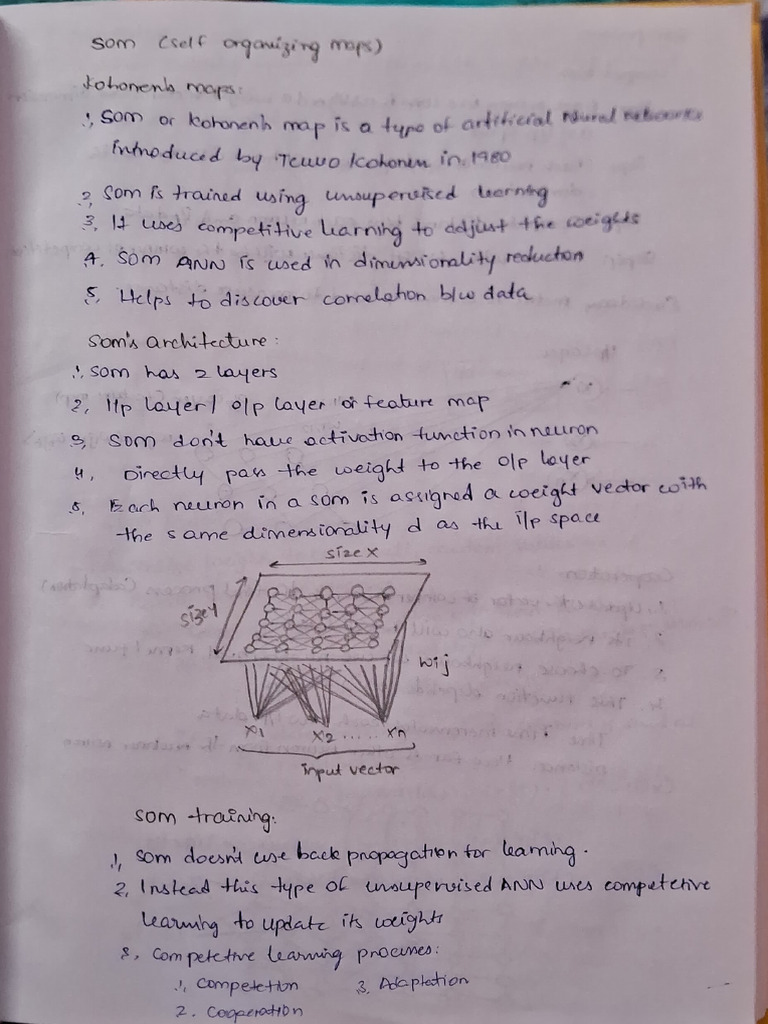 SOM (self organizing maps)
Kohonen's maps:
1, SOM or Kohonen's map is a type of artificial Neural networks
introduced by Teuvo Kohonen in 1980
2, SOM is trained using unsupervised learning
3. It uses competitive learning to adjust the weights
4. SOM ANN is used in dimensionality reduction
5. Helps to discover correlation b/w data
SOM's architecture:
1. SOM has 2 layers
2, I/p layer / o/p layer or feature map
3, SOM don't have activation function in neuron
4, Directly pass the weight to the o/p layer
5, Each neuron in a SOM is assigned a weight vector with
the same dimensionality d as the i/p space
size x
size y
wij
x1 x2 ..... xn
input vector
SOM training:
1, SOM doesn't use back propagation for learning.
2, Instead this type of unsupervised ANN uses competetive
learning to update its weights
3, Competetive learning processes:
1, Competetion 3. Adaptation
2. Cooperation